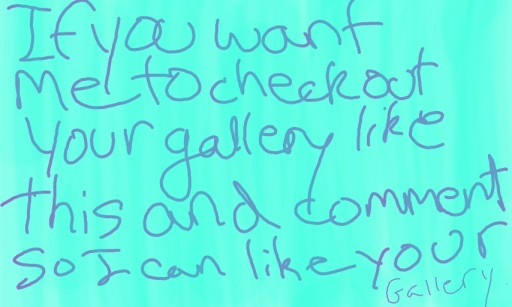 If you want
me to check out
your gallery like
this and comment
so I can like your
Gallery.